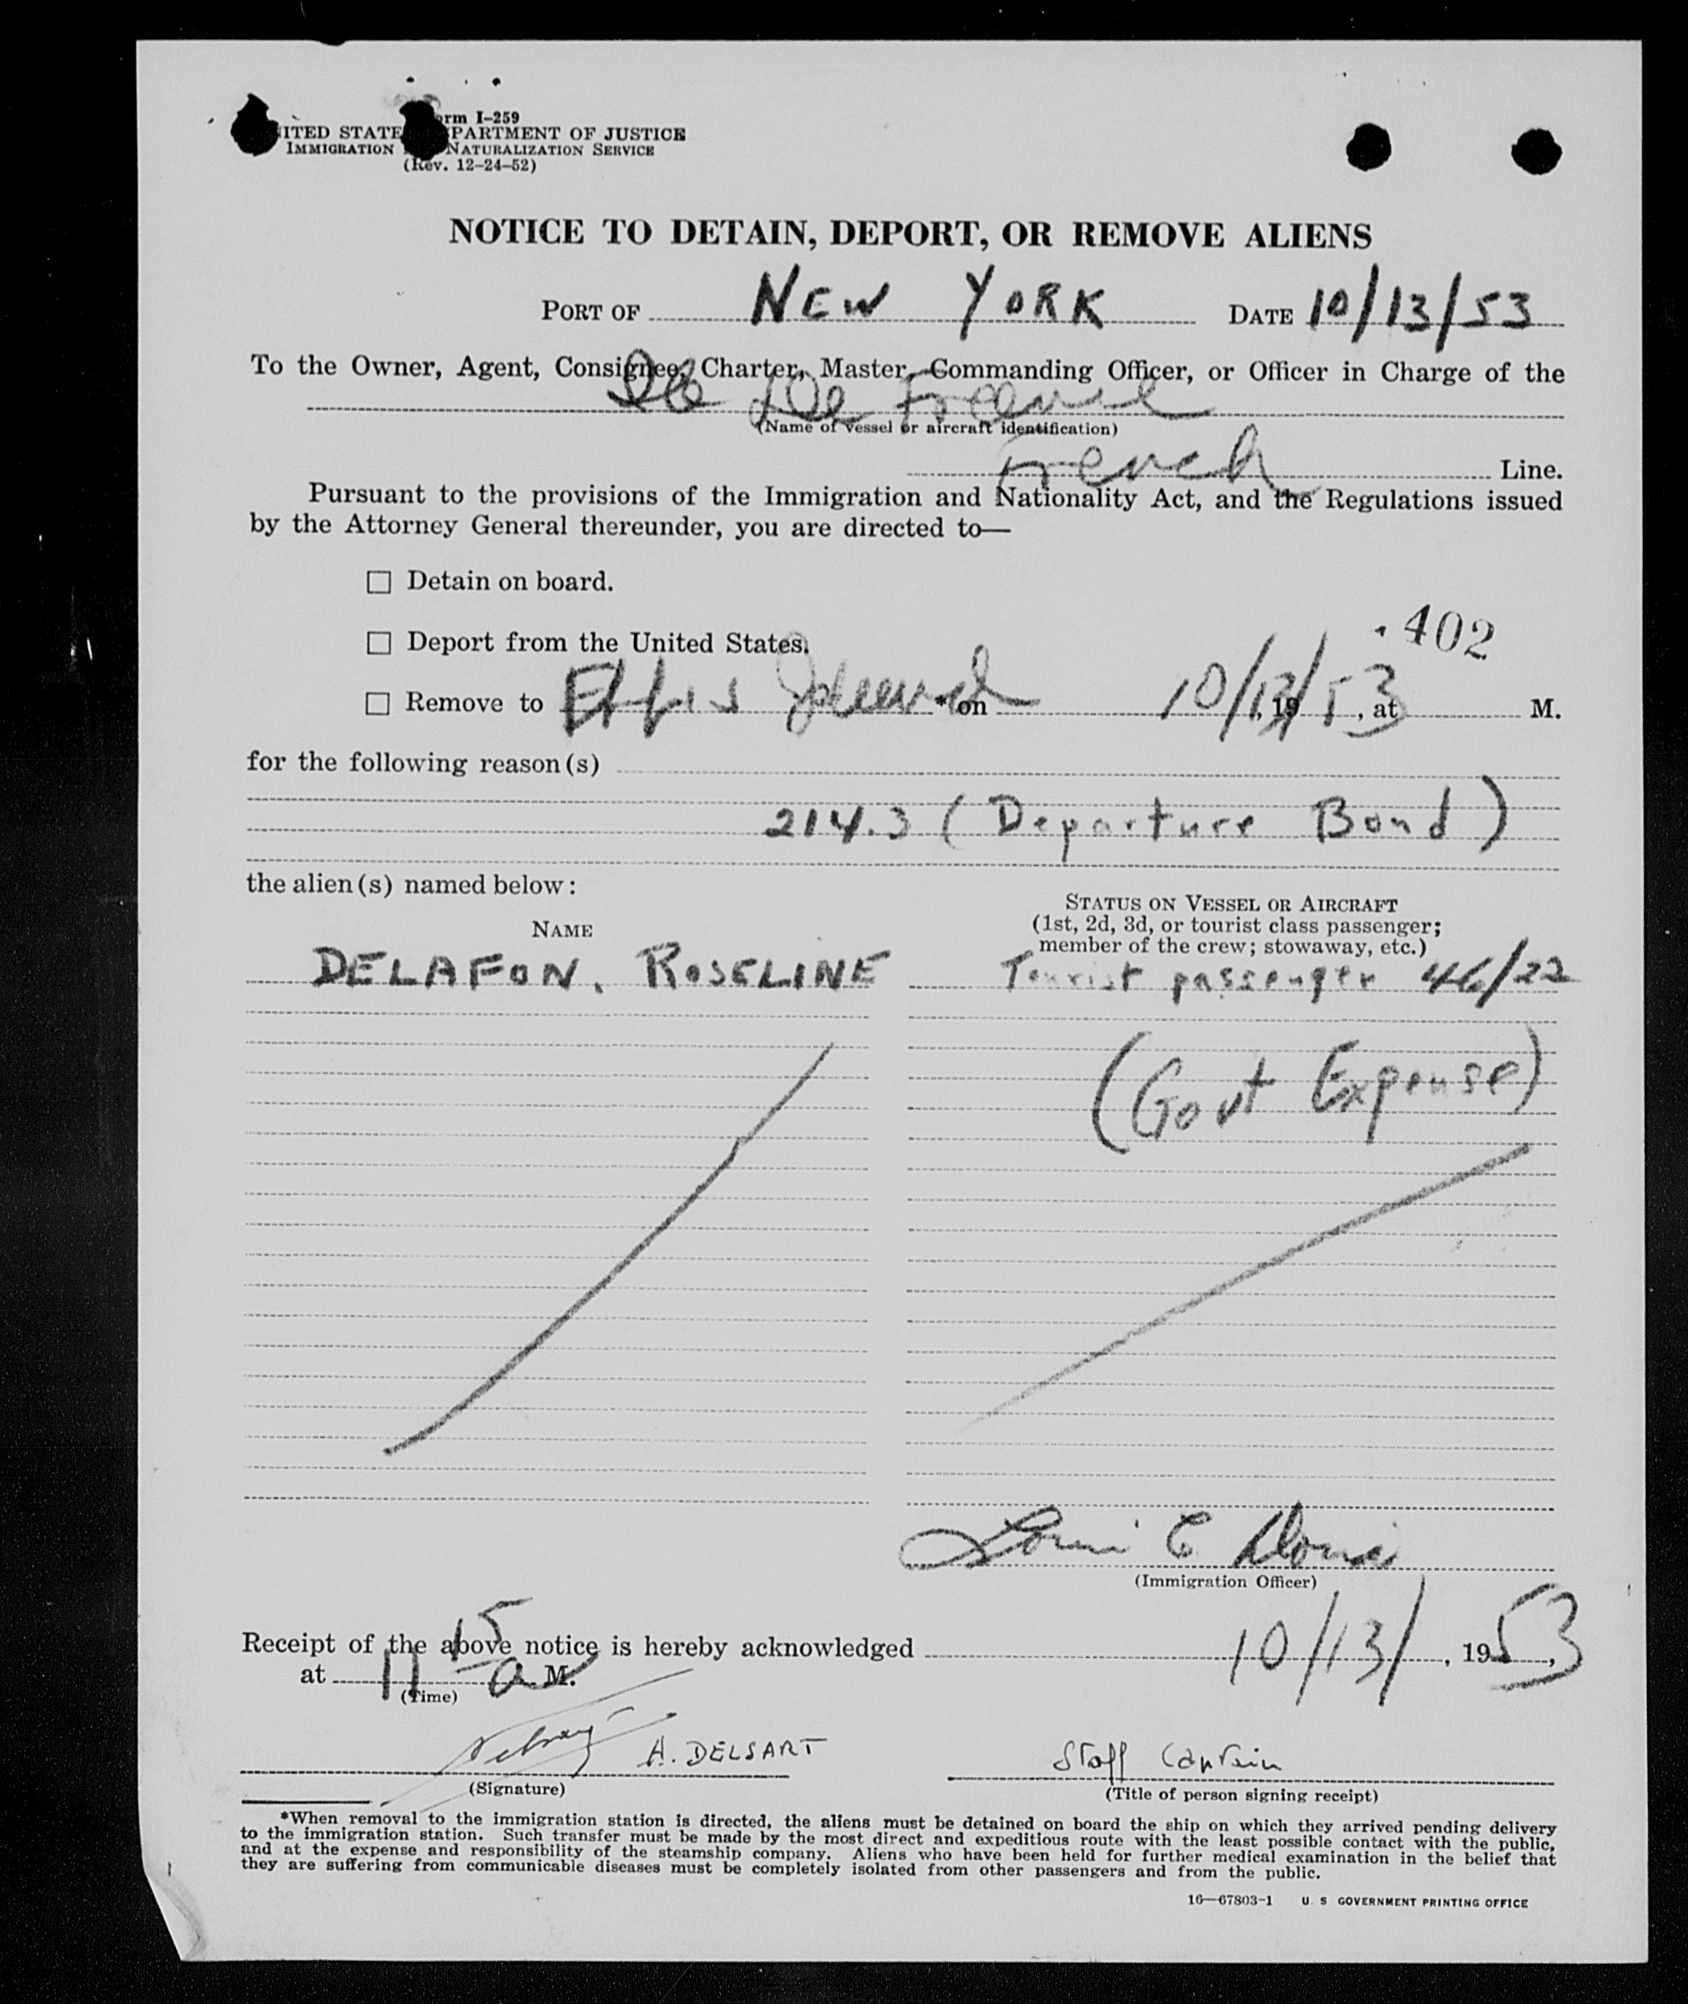 rm I-259
ITED STATE PARTMENT OF JUSTICE
IMMIGRATION NATURALIZATION SERVICE
(Rev. 12-24-52)
NOTICE TO DETAIN, DEPORT, OR REMOVE ALIENS
PORT OF NEW YORK DATE 10/13/53
To the Owner, Agent, Consignee, Charter, Master, Commanding Officer, or Officer in Charge of the
Ile De France
(Name of vessel or aircraft identification)
French Line.
Pursuant to the provisions of the Immigration and Nationality Act, and the Regulations issued
by the Attorney General thereunder, you are directed to—
☐ Detain on board.
402
☐ Deport from the United States.
☐ Remove to Ellis Island *on 10/13/, 1953, at M.
for the following reason(s)
214.3 (Departure Bond)
the alien(s) named below:
NAME
STATUS ON VESSEL OR AIRCRAFT
(1st, 2d, 3d, or tourist class passenger;
member of the crew; stowaway, etc.)
DELAFON, ROSELINE Tourist passenger 46/22
(Govt Expense)
(Immigration Officer)
Receipt of the above notice is hereby acknowledged 10/13/, 1953,
at 11 15 a M.
(Time)
A. DELSART Staff Captain
(Signature) (Title of person signing receipt)
*When removal to the immigration station is directed, the aliens must be detained on board the ship on which they arrived pending delivery
to the immigration station. Such transfer must be made by the most direct and expeditious route with the least possible contact with the public,
and at the expense and responsibility of the steamship company. Aliens who have been held for further medical examination in the belief that
they are suffering from communicable diseases must be completely isolated from other passengers and from the public.
16—67803-1 U. S GOVERNMENT PRINTING OFFICE